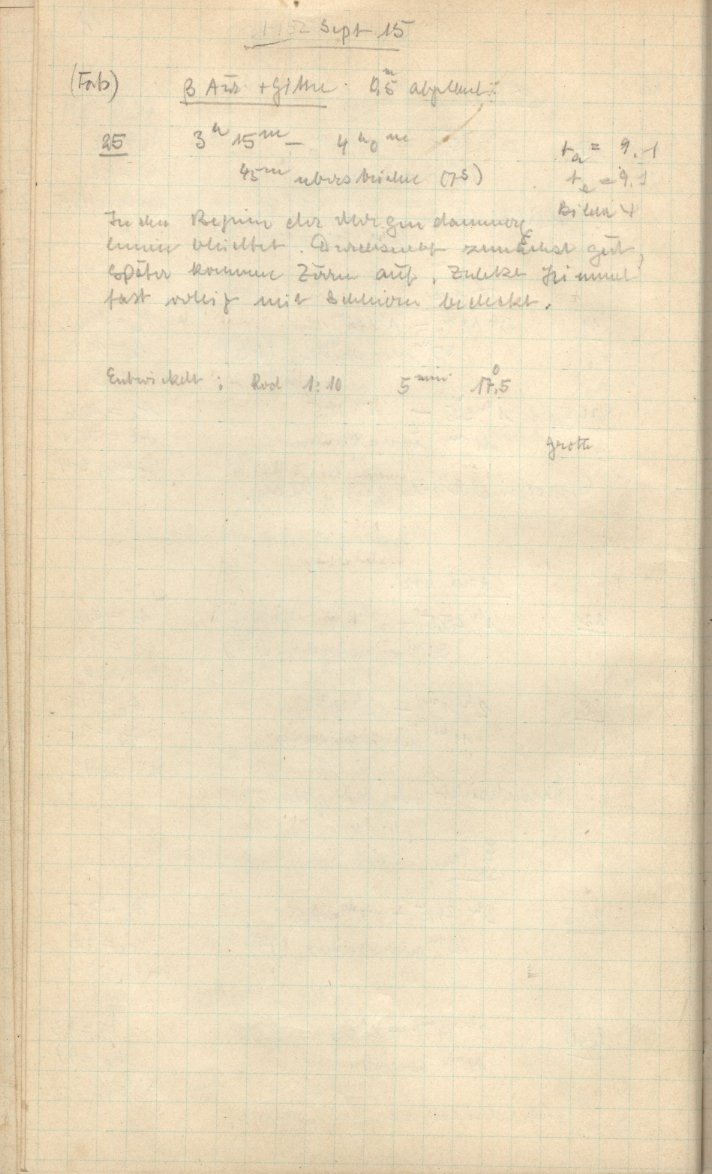 1932 Sept 15
(Fab) β Aur + Gitter 0,5ᵐ abgeblendet
25 3ʰ 15ᵐ – 4ʰ 0ᵐ tₐ = 9.1
45ᵐ (7ˢ) tₑ = 9.1
In den Beginn der Morgendämmerg Bilder 4
hinein belichtet. Durchsicht zunächst gut,
später kommen Zirren auf. Zuletzt Himmel
fast völlig mit Schlieren bedeckt.
Entwickelt: Rod 1:10 5 min 17,5°
Groth